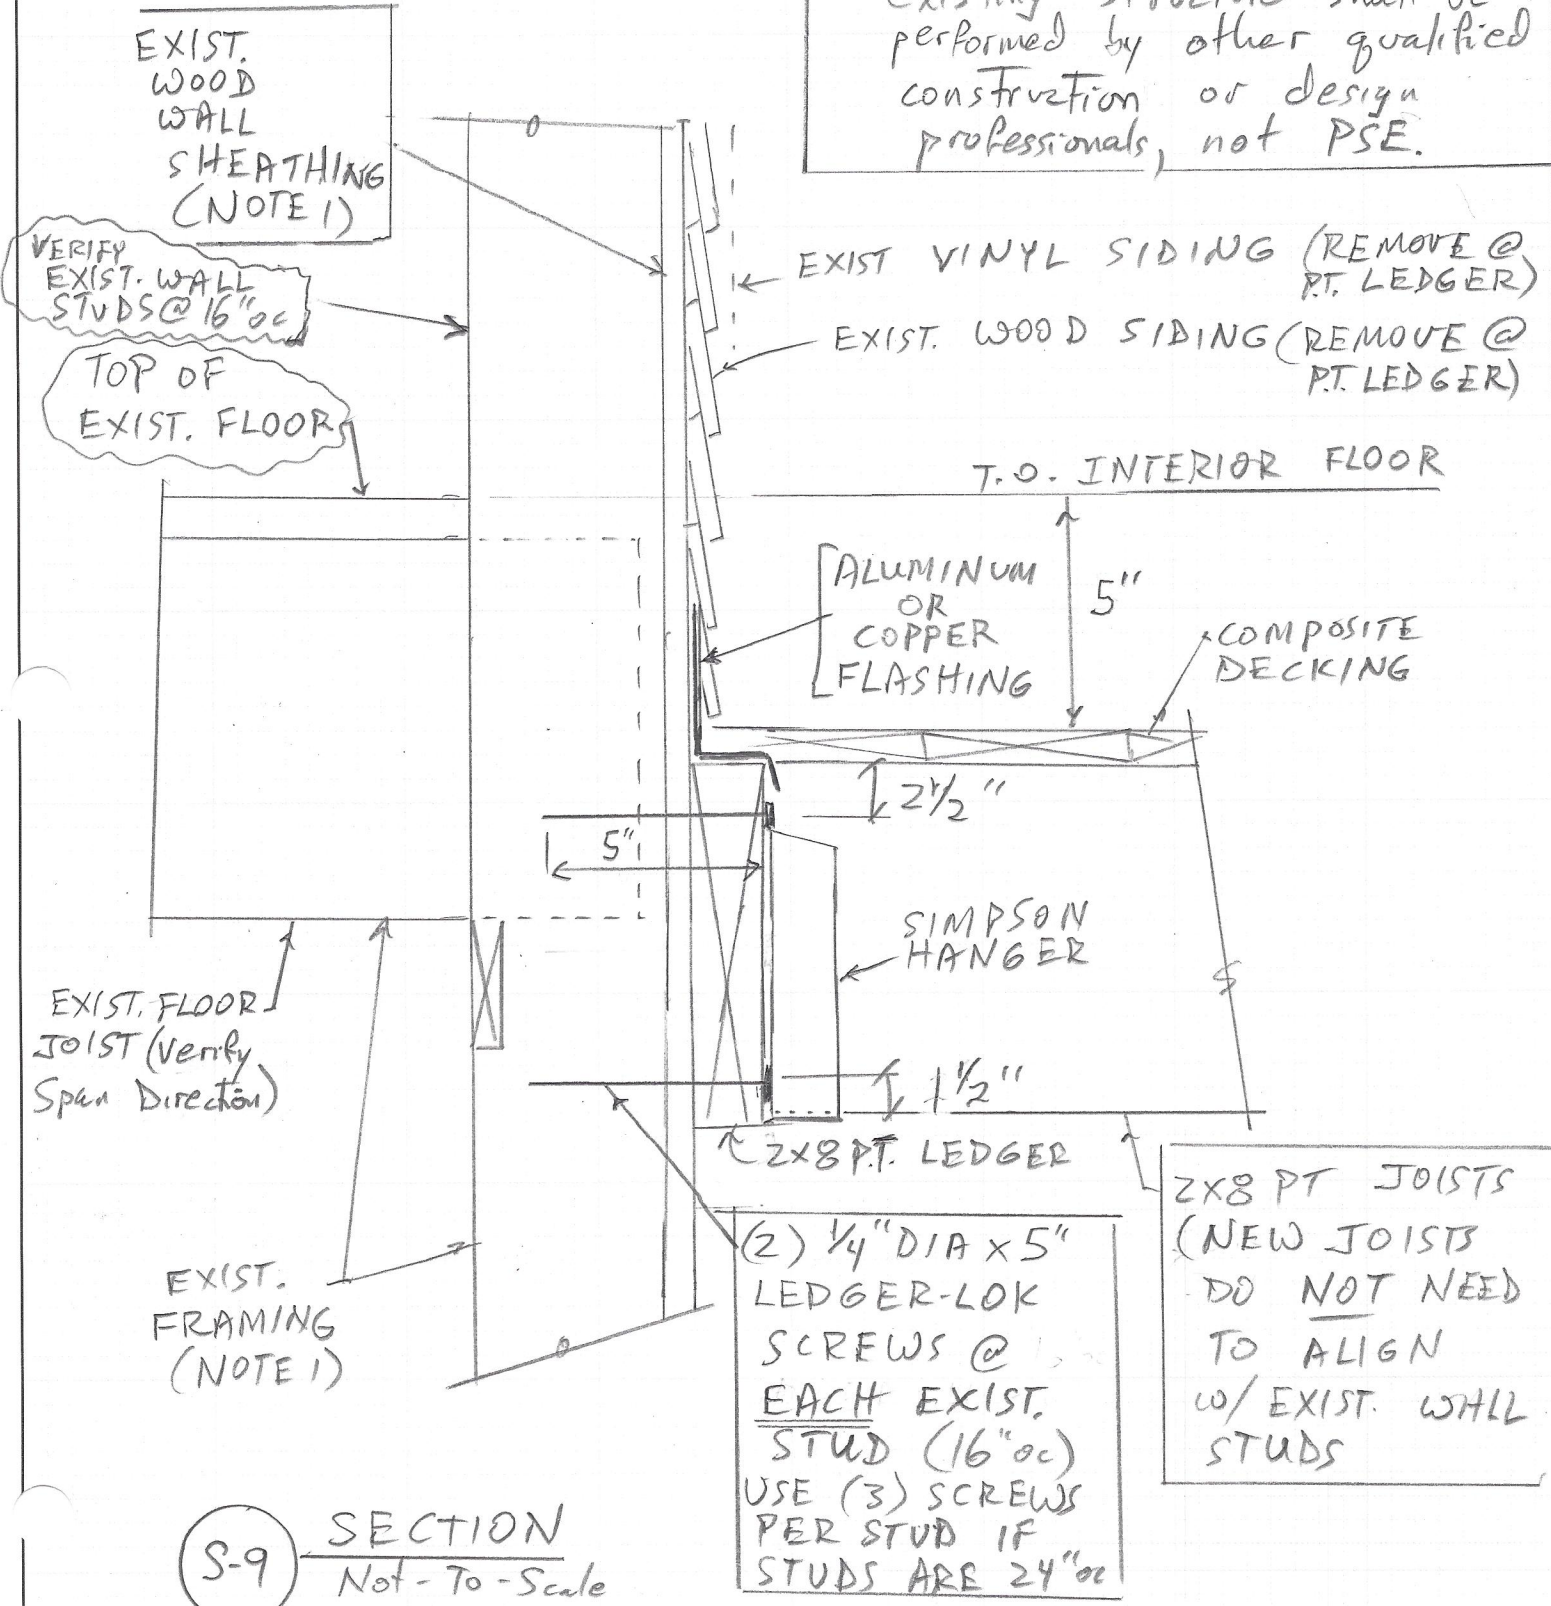 EXIST.
WOOD
WALL
SHEATHING
(NOTE 1)
existing structure shall be
performed by other qualified
construction or design
professionals, not PSE.
VERIFY
EXIST. WALL
STUDS @ 16" oc
TOP OF
EXIST. FLOOR
EXIST VINYL SIDING (REMOVE @
P.T. LEDGER)
EXIST. WOOD SIDING (REMOVE @
P.T. LEDGER)
T.O. INTERIOR FLOOR
ALUMINUM
OR
COPPER
FLASHING
5"
COMPOSITE
DECKING
2 1/2"
5"
SIMPSON
HANGER
EXIST. FLOOR
JOIST (Verify
Span Direction)
1 1/2"
2X8 P.T. LEDGER
2X8 PT JOISTS
(NEW JOISTS
DO NOT NEED
TO ALIGN
W/ EXIST. WALL
STUDS
EXIST.
FRAMING
(NOTE 1)
(2) 1/4" DIA X 5"
LEDGER-LOK
SCREWS @
EACH EXIST.
STUD (16" oc)
USE (3) SCREWS
PER STUD IF
STUDS ARE 24" oc
S-9
SECTION
Not-To-Scale